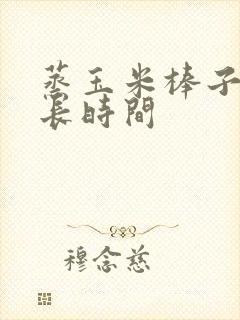 蒸玉米棒子
長時間
穆念慈